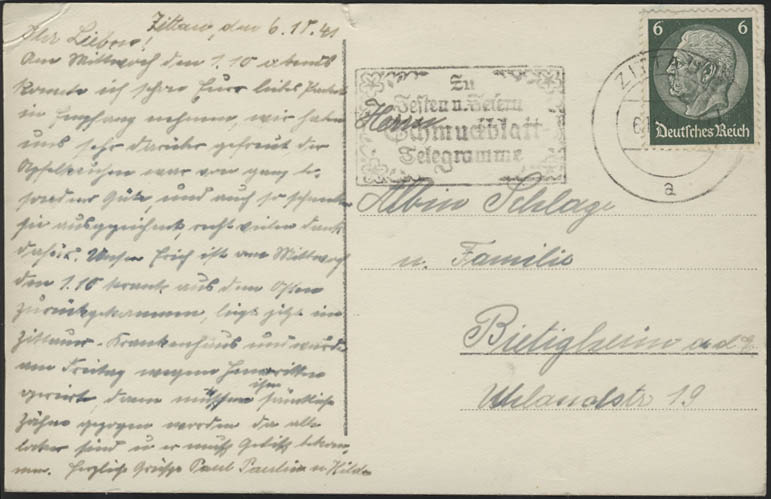 Zittau, den 6.10.41
Ihr Lieben!
Am Mittwoch den 1.10 abends
konnte ich schon Euer liebes Paket
in Empfang nehmen, wir haben
uns sehr darüber gefreut der
Apfelkuchen war von ganz be,
sonderer Güte, und auch so schmeckt
sie ausgezeichnet, recht vielen Dank
dafür. Unser Erich ist am Mittwoch
den 1.10 krank aus dem Osten
zurückgekommen, liegt jetzt im
Zittauer Krankenhaus und wurde
am Freitag wegen
dann müssen ihm sämtliche
Zähne gezogen werden da alle
locker sind u er muß Gebiß bekom,
men. Herzliche Grüße Paul Pauline u. Hilde
Zu
Festen u. Feiern
Schmuckblatt-
Telegramme
ZITTAU
a
6 6
Deutsches Reich
Herrn
Albin Schlage
u. Familie
Bietigheim a.d.
Uhlandstr 19